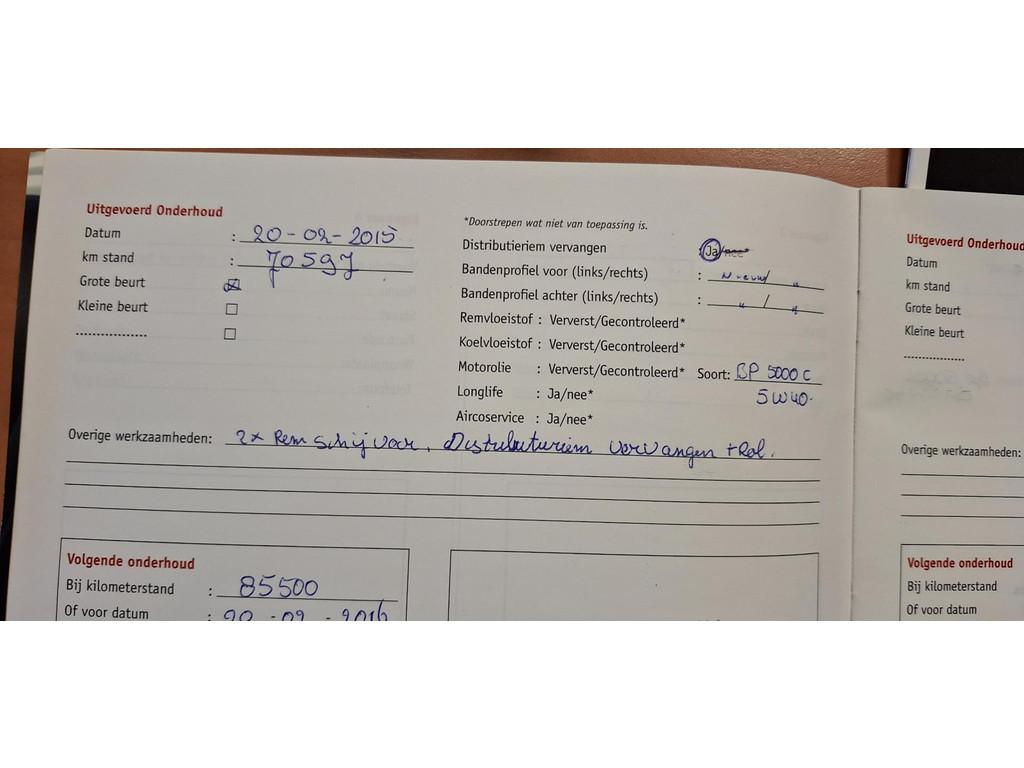 Uitgevoerd Onderhoud
Datum : 20-02-2015
km stand : 70597
Grote beurt
Kleine beurt
*Doorstrepen wat niet van toepassing is.
Distributieriem vervangen : Ja/nee*
Bandenprofiel voor (links/rechts) : nieuw / "
Bandenprofiel achter (links/rechts) : " / "
Remvloeistof : Ververst/Gecontroleerd*
Koelvloeistof : Ververst/Gecontroleerd*
Motorolie : Ververst/Gecontroleerd* Soort: BP 5000 C
5W40.
Longlife : Ja/nee*
Aircoservice : Ja/nee*
Overige werkzaamheden: 2x Rem schijvoor, Distributieriem vervangen + Rol.
Volgende onderhoud
Bij kilometerstand : 85500
Of voor datum : 20-02-2016
Uitgevoerd Onderhoud
Datum
km stand
Grote beurt
Kleine beurt
Overige werkzaamheden:
Volgende onderhoud
Bij kilometerstand
Of voor datum